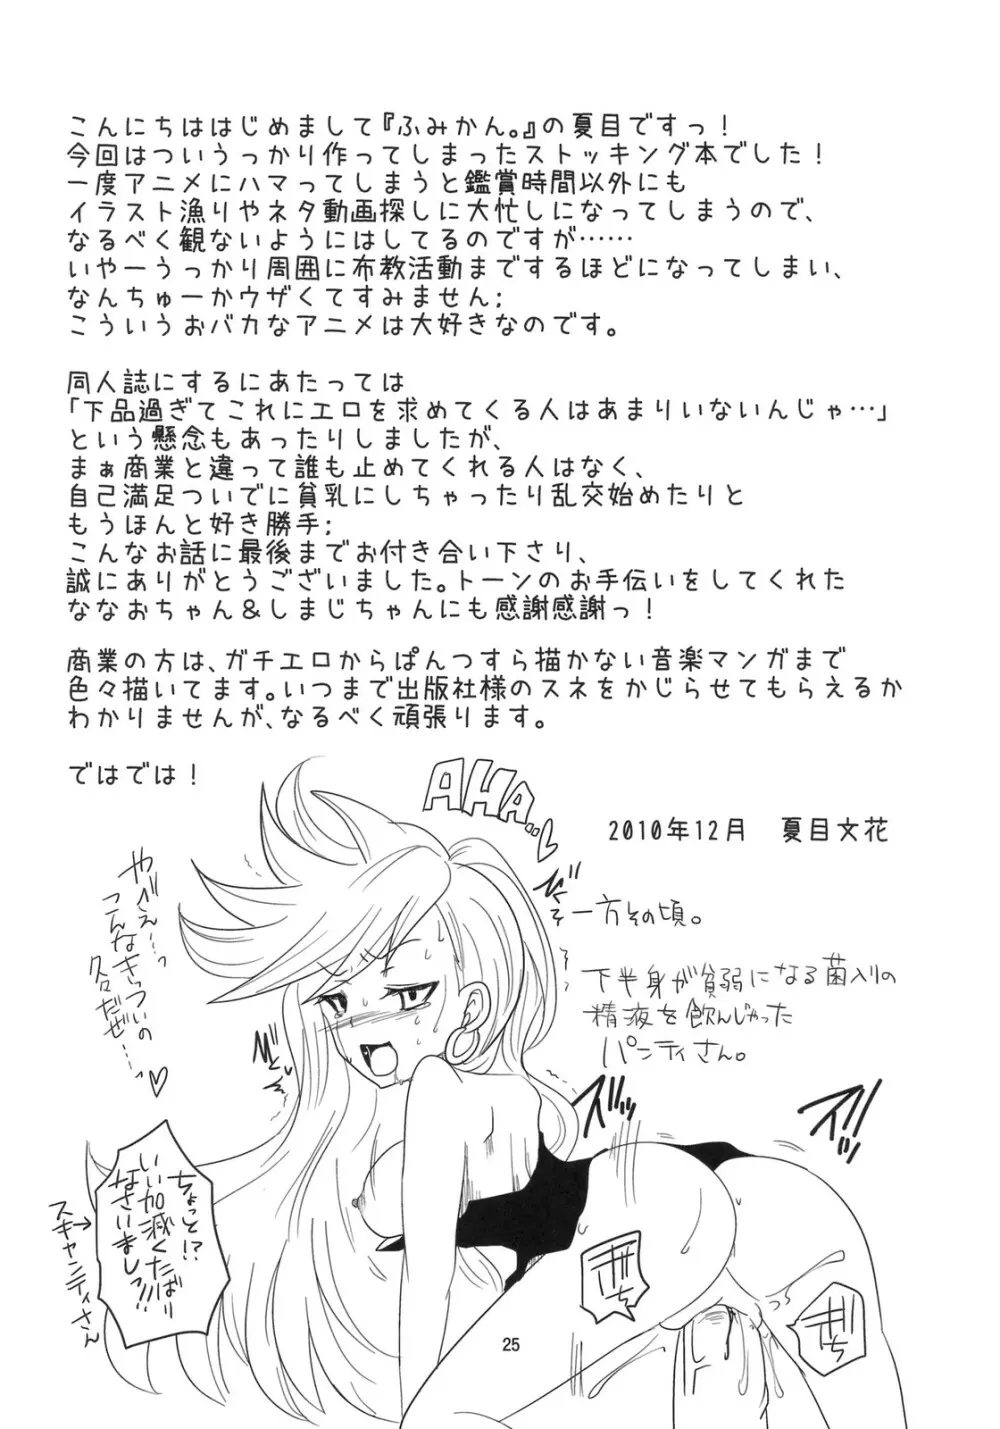 こんにちははじめまして『ふみかん。』の夏目ですっ！
今回はついうっかり作ってしまったストッキング本でした！
一度アニメにハマってしまうと鑑賞時間以外にも
イラスト漁りやネタ動画探しに大忙しになってしまうので、
なるべく観ないようにはしてるのですが……
いやーうっかり周囲に布教活動までするほどになってしまい、
なんちゅーかウザくてすみません;
こういうおバカなアニメは大好きなのです。
同人誌にするにあたっては
「下品過ぎてこれにエロを求めてくる人はあまりいないんじゃ…」
という懸念もあったりしましたが、
まぁ商業と違って誰も止めてくれる人はなく、
自己満足ついでに貧乳にしちゃったり乱交始めたりと
もうほんと好き勝手;
こんなお話に最後までお付き合い下さり、
誠にありがとうございました。トーンのお手伝いをしてくれた
ななおちゃん＆しまじちゃんにも感謝感謝っ！
商業の方は、ガチエロからぱんつすら描かない音楽マンガまで
色々描いてます。いつまで出版社様のスネをかじらせてもらえるか
わかりませんが、なるべく頑張ります。
ではでは！
2010年12月　夏目文花
AHA..♥
一方その頃。
下半身が貧弱になる菌入りの
精液を飲んじゃった
パンティさん。
やべぇ…っ
こんなきっついの
久々だぜ…♡
ちょっと!?
いい加減くたばり
なさいましっ!!!
スキャンティさん
25